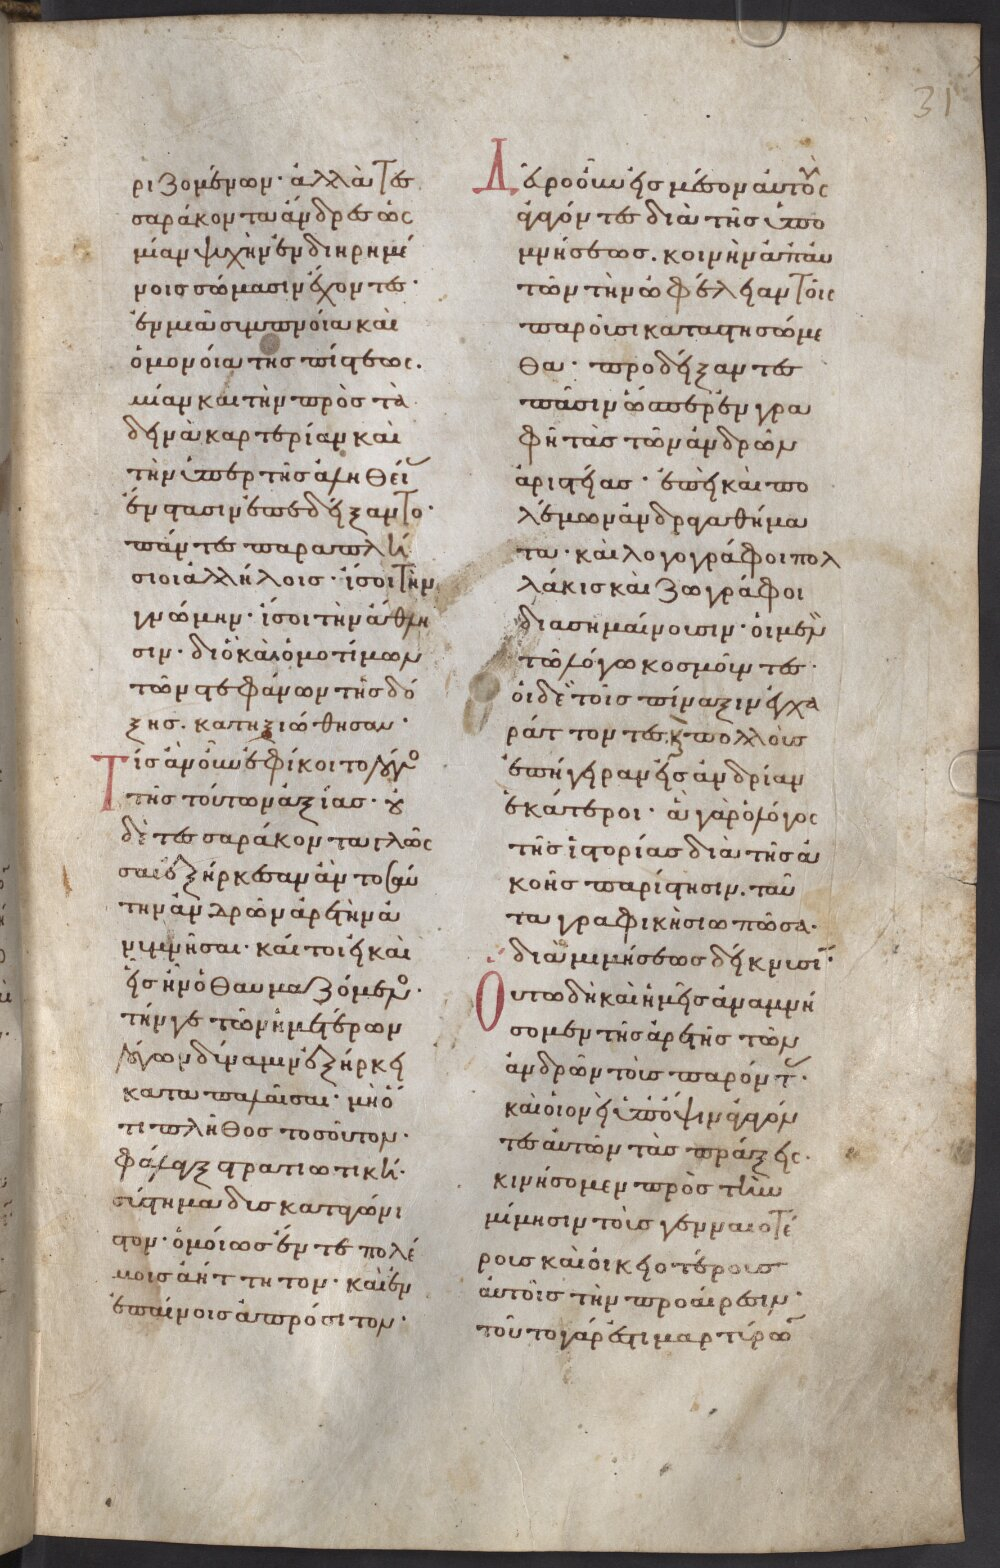 31
ριζομένων· ἀλλὰ τεσ
σαράκοντα ἄνδρες ὡς
μίαν ψυχὴν ἐν διῃρημέ
νοις σώμασιν ἔχοντες·
ἐν μιᾷ συμπνοίᾳ καὶ
ὁμονοίᾳ τῆς πίστεως.
μίαν καὶ τὴν πρὸς τὰ
δεινὰ καρτερίαν καὶ
τὴν ὑπὲρ τῆς ἀληθεί
ἔνστασιν ἐπεδείξαντο·
πάντες παραπλή
σιοι ἀλλήλοις· ἴσοι τὴν
γνώμην· ἴσοι τὴν ἄθλη
σιν· διὸ καὶ ὁμοτίμων
τῶν στεφάνων τῆς δό
ξης. κατηξιώθησαν·
Τίς ἂν οὖν ἐφίκοιτο λόγο
τῆς τούτων ἀξίας· οὐ
δὲ τεσσαράκοντα γλῶσ
σαι ἐξήρκεσαν ἂν τοσαύ
την ἀνδρῶν ἀρετὴν ἀ
νυμνῆσαι· καίτοι εἰ καὶ
εἷς ἦν ὁ θαυμαζόμενο·
τήν γε τῶν ἡμετέρων
λόγων δύναμιν ἐξήρκει
καταπαλαῖσαι· μὴ ὅ
τι πλῆθος τοσοῦτον·
φάλαγξ στρατιωτική·
σύστημα δυσκαταγώνι
στον· ὁμοίως ἔν τε πολέ
μοις ἀήττητον· καὶ ἐν
ἐπαίνοις ἀπρόσιτον·
Δεῦρο οὖν εἰς μέσον αὐτοὺς
ἀγαγόντες διὰ τῆς ὑπο
μνήσεως. κοινὴν ἀπ' αὐ
τῶν τὴν ὠφέλειαν τοῖς
παροῦσι καταστησώμε
θα· προδείξαντες
πᾶσιν ὥσπερ ἐν γρα
φῇ τὰς τῶν ἀνδρῶν
ἀριστείας· ἐπεὶ καὶ πο
λέμων ἀνδραγαθήμα
τα· καὶ λογογράφοι πολ
λάκις καὶ ζωγράφοι
διασημαίνουσιν· οἱ μὲν
τῷ λόγῳ κοσμοῦντες·
οἱ δὲ τοῖς πίναξιν ἐγχα
ράττοντες· καὶ πολλοὺς
ἐπήγειραν εἰς ἀνδρίαν
ἑκάτεροι· ἃ γὰρ ὁ λόγος
τῆς ἱστορίας διὰ τῆς ἀ
κοῆς παρίστησιν. ταῦ
τα γραφικὴ σιωπῶσα·
διὰ μιμήσεως δείκνυσιν·
Οὕτω δὴ καὶ ἡμεῖς ἀναμνή
σομεν τῆς ἀρετῆς τῶν
ἀνδρῶν τοὺς παρόντας·
καὶ οἱονεὶ ὑπόψιν ἀγαγόν
τες αὐτῶν τὰς πράξεις·
κινήσομεν πρὸς τὴν
μίμησιν τοὺς γενναιοτέ
ροις καὶ οἰκειοτέροις
αὐτοῖς τὴν προαίρεσιν·
τοῦτο γάρ ἐστι μαρτύρων